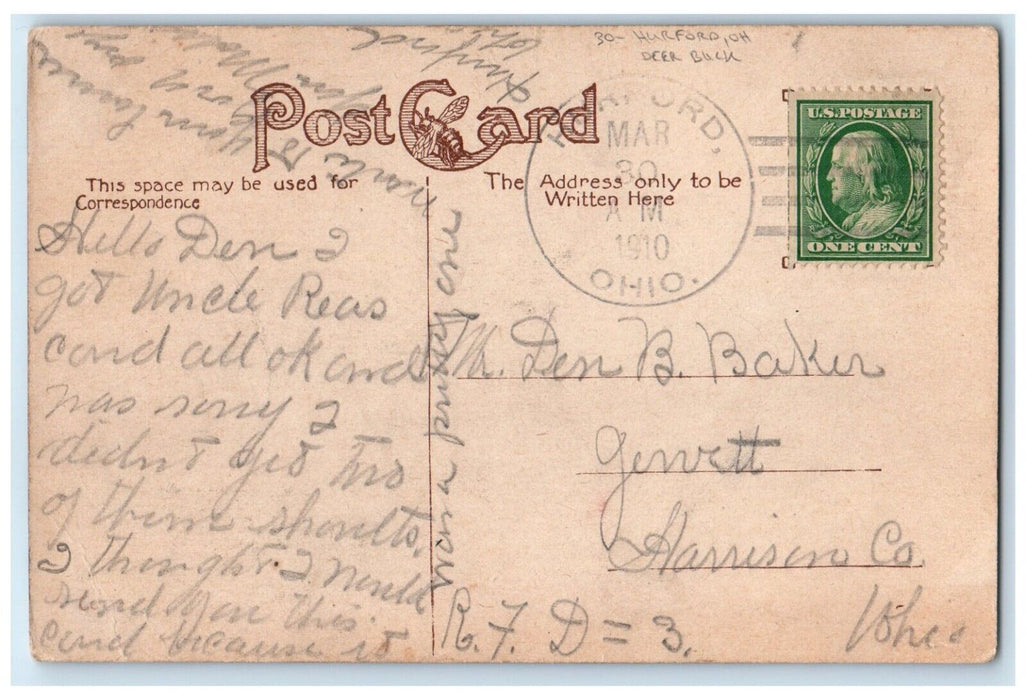 30- HURFORD, OH
DEER BUCK
Post Card
This space may be used for
Correspondence
The Address only to be
Written Here
HURFORD,
MAR
30
AM
1910
OHIO.
U.S. POSTAGE
ONE CENT
Hello Den I
got Uncle Reas
card all ok and
was sorry I
didnt get two
of them
I thought I would
send you this
card because it
was a pretty one
M. Den B. Baker
Gewett
Harrison Co.
Ohio
R.F. D = 3.